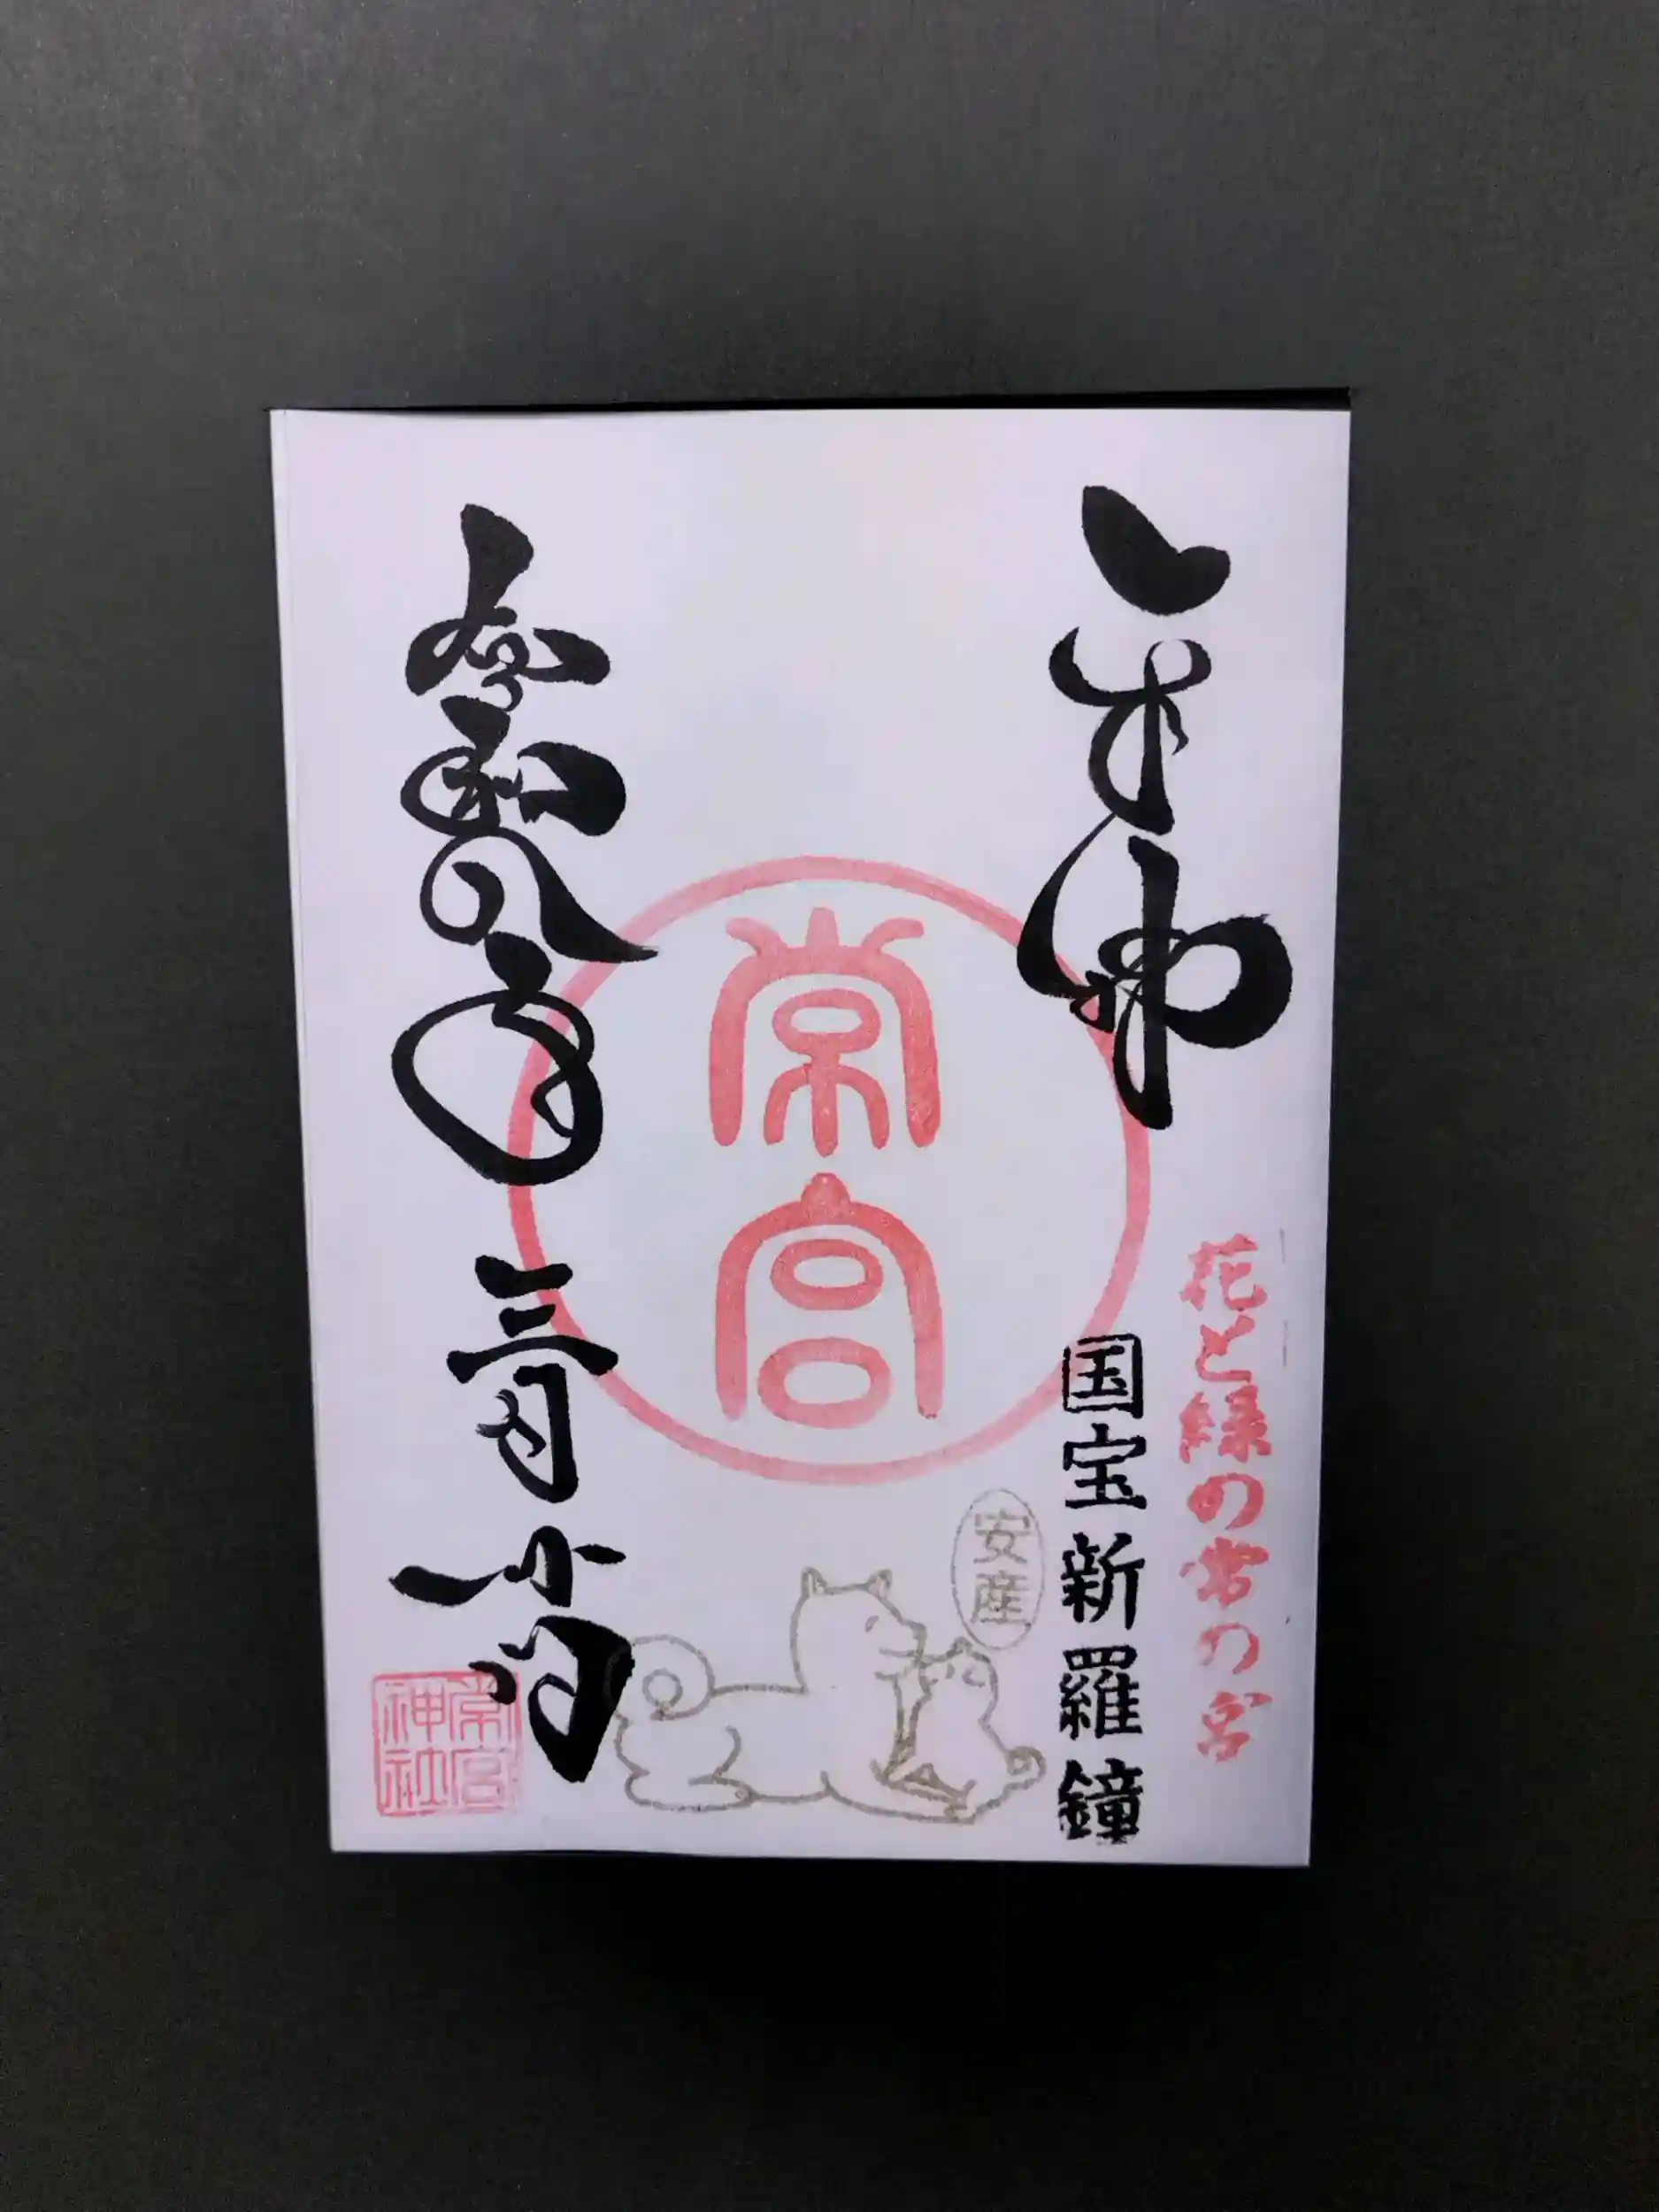 花と緑の常の宮
国宝新羅鐘
安産
常宮
令和八年三月
常宮神社